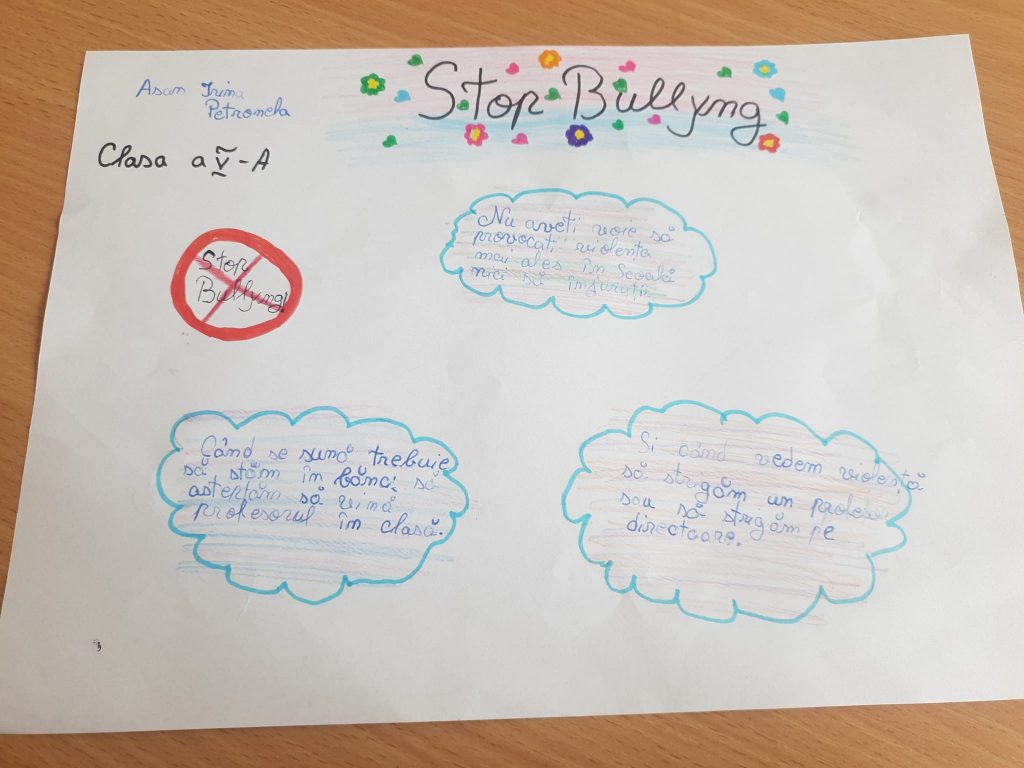 Asan Irina
Petronela
Stop Bullyng
Clasa a V-A
Stop
Bullyng!
Nu aveti voie să
provocati violenta
mai ales în Scoală
nici să înjurați.
Când se sună trebuie
să stăm în bănci să
asteptăm să vină
profesorul în clasă.
Si când vedem violență
să strigăm un profesor
sau să strigăm pe
directoare.